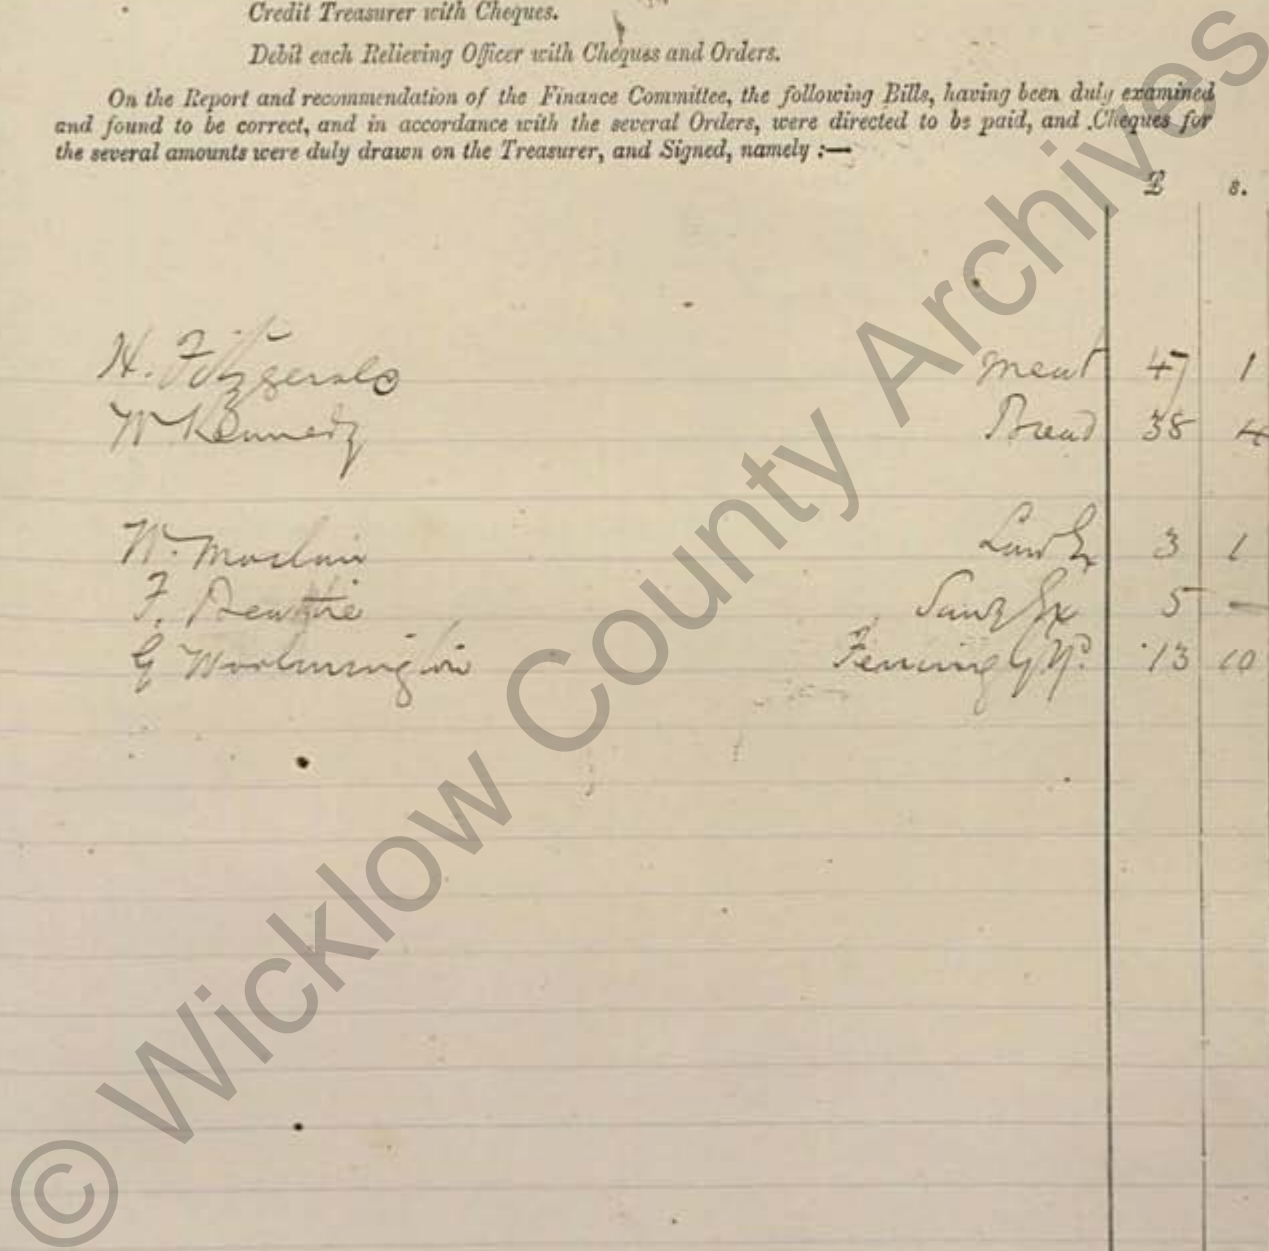 Credit Treasurer with Cheques.
Debit each Relieving Officer with Cheques and Orders.
On the Report and recommendation of the Finance Committee, the following Bills, having been duly examined
and found to be correct, and in accordance with the several Orders, were directed to be paid, and Cheques for
the several amounts were duly drawn on the Treasurer, and Signed, namely :—
£ s.
H. Fitzgerald Meat 47 1
W Kennedy Bread 38 4
W. Law Ex 3 1
F. Beattie Ex 5 —
G Woolmington Fencing 13 10
© Wicklow County Archives